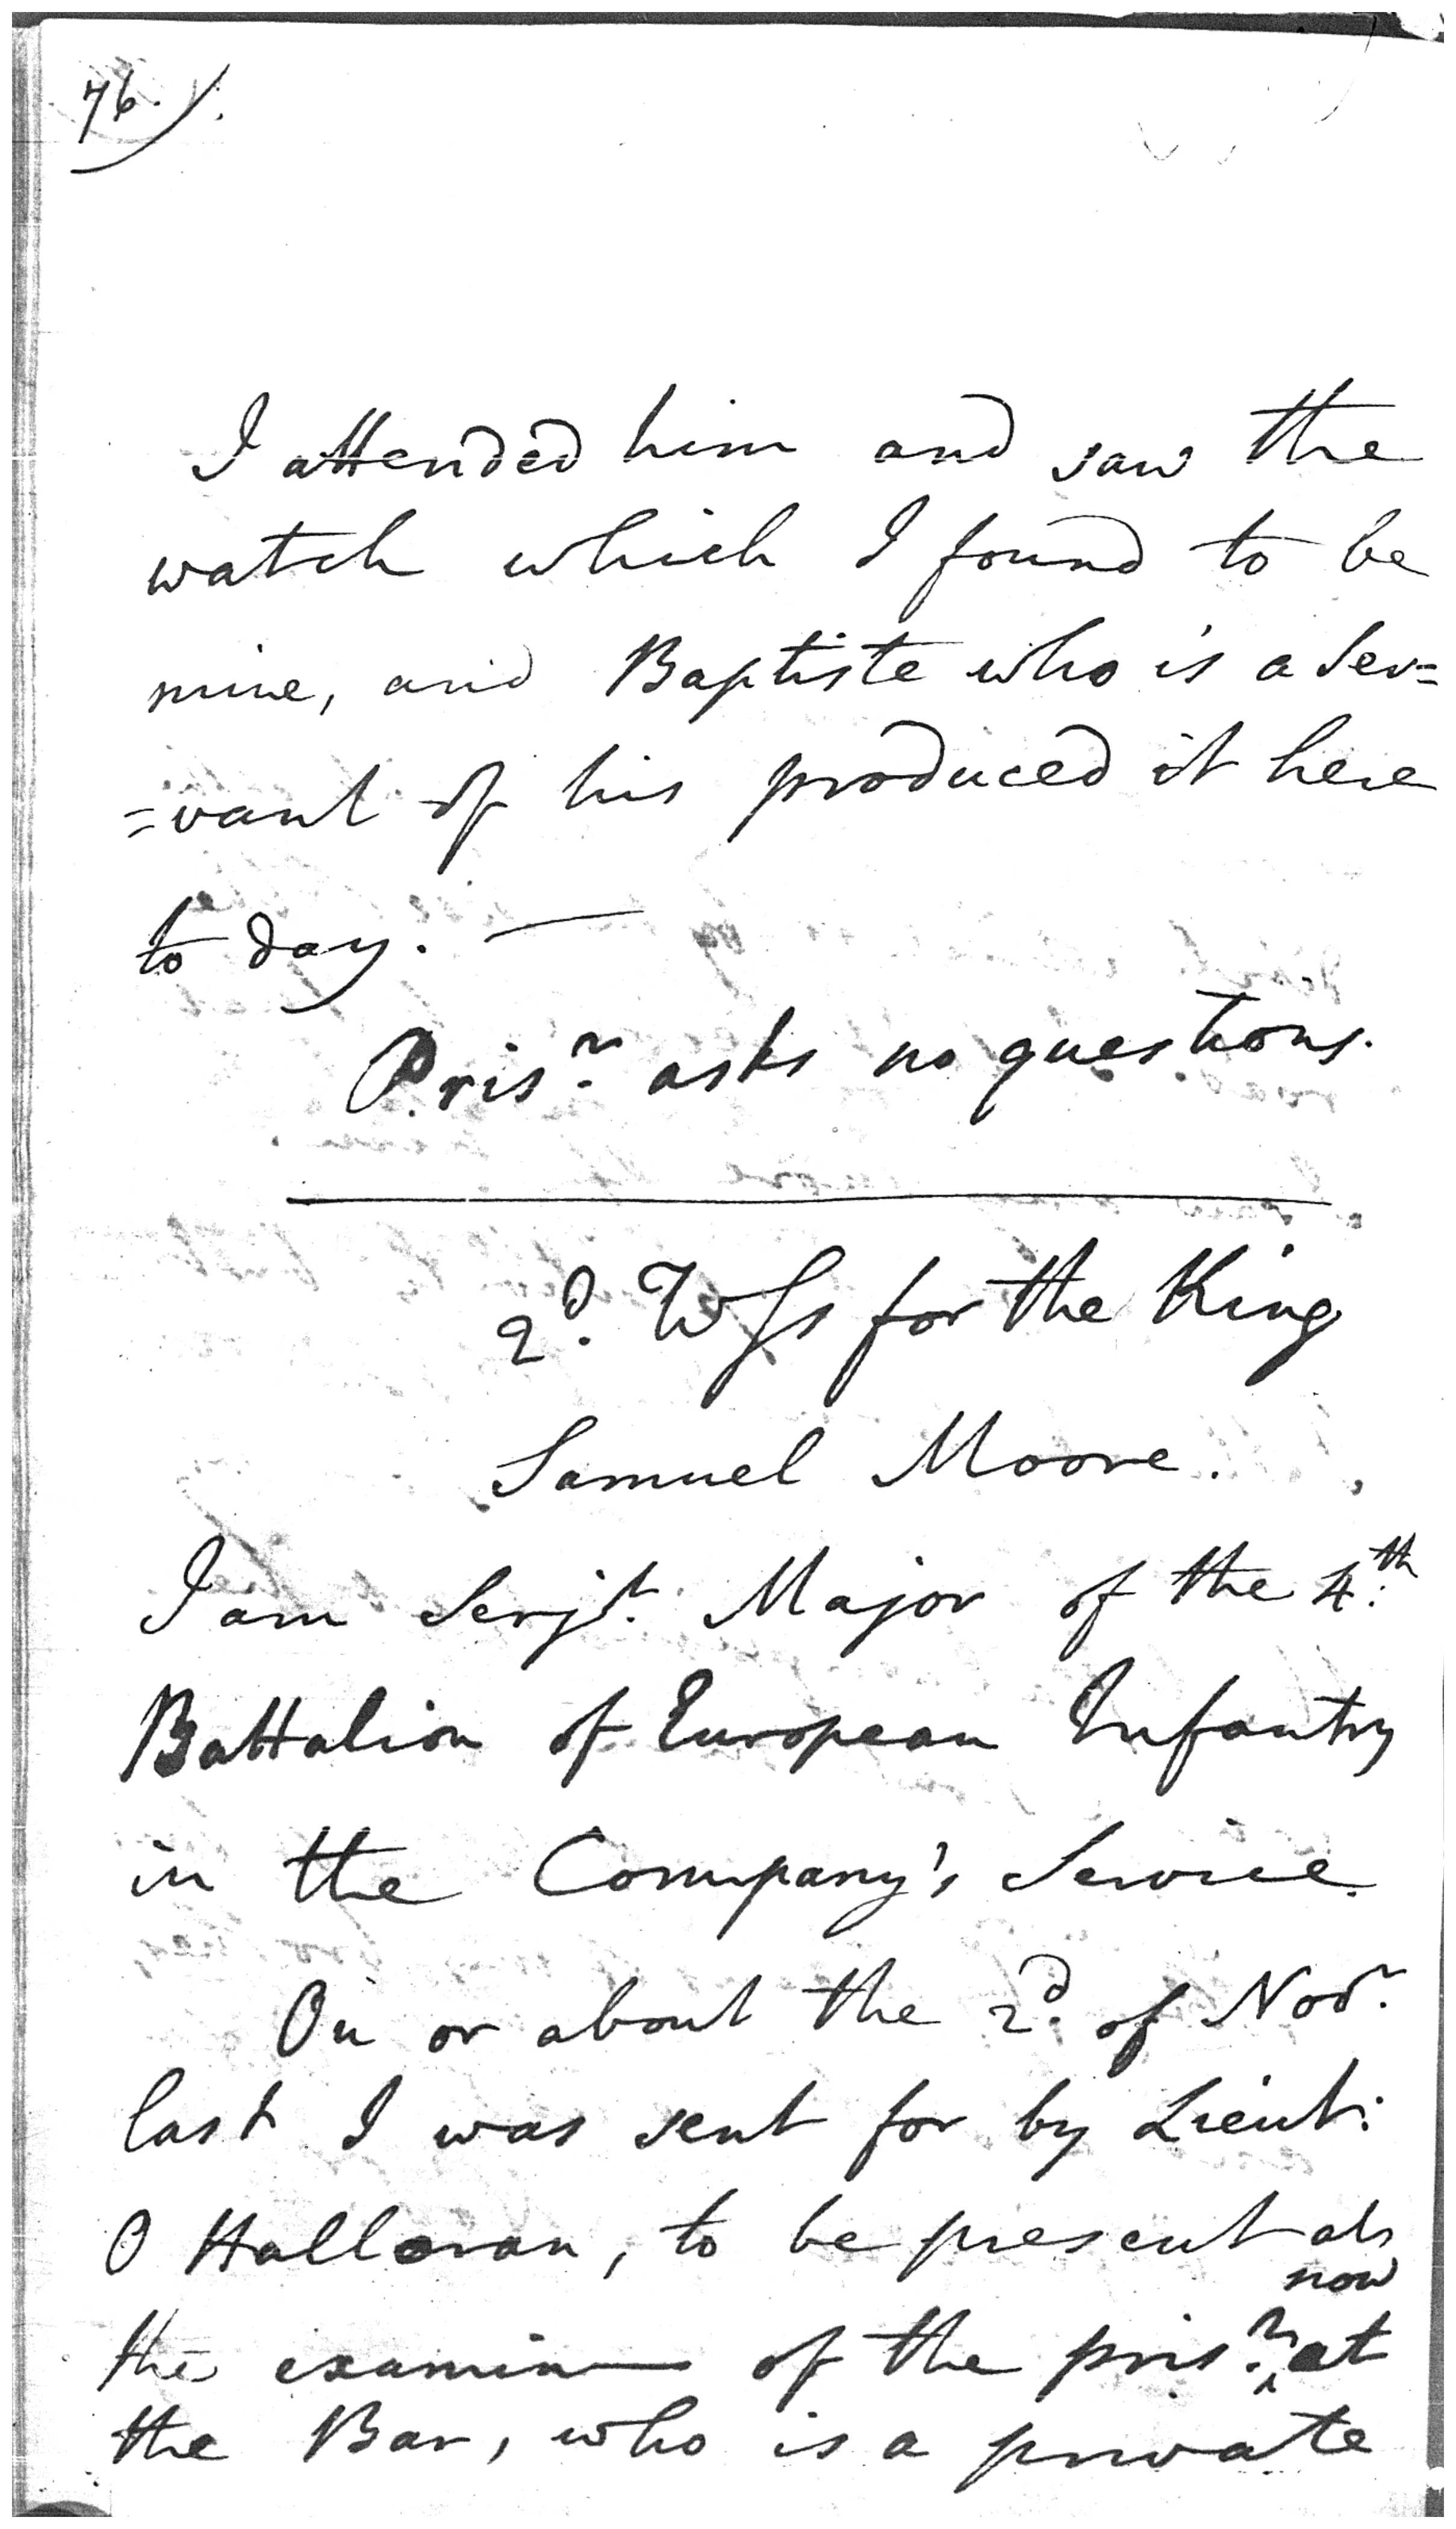 76.
I attended him and saw the
watch which I found to be
mine, and Baptiste who is a Ser=
=vant of his produced it here
to day. —
Prisr. asks no questions.
2d. Wss for the King
Samuel Moore.
I am Serjt. Major of the 4th.
Battalion of European Infantry
in the Company's Service.
On or about the 2d. of Novr.
last I was sent for by Lieut:
O Halloran, to be present at
now
the examin— of the prisr. ‸ at
the Bar, who is a private